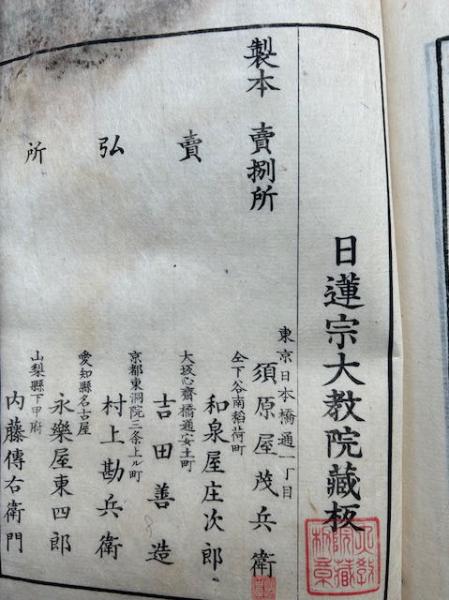 日蓮宗大教院藏板
大教院藏板章
製本 賣捌所
東京日本橋通一丁目
須原屋茂兵衛
仝下谷南稻荷町
和泉屋庄次郎
賣弘所
大坂心齋橋通安土町
吉田善造
京都東洞院三条上ル町
村上勘兵衛
愛知縣名古屋
永樂屋東四郎
山梨縣下甲府
内藤傳右衛門